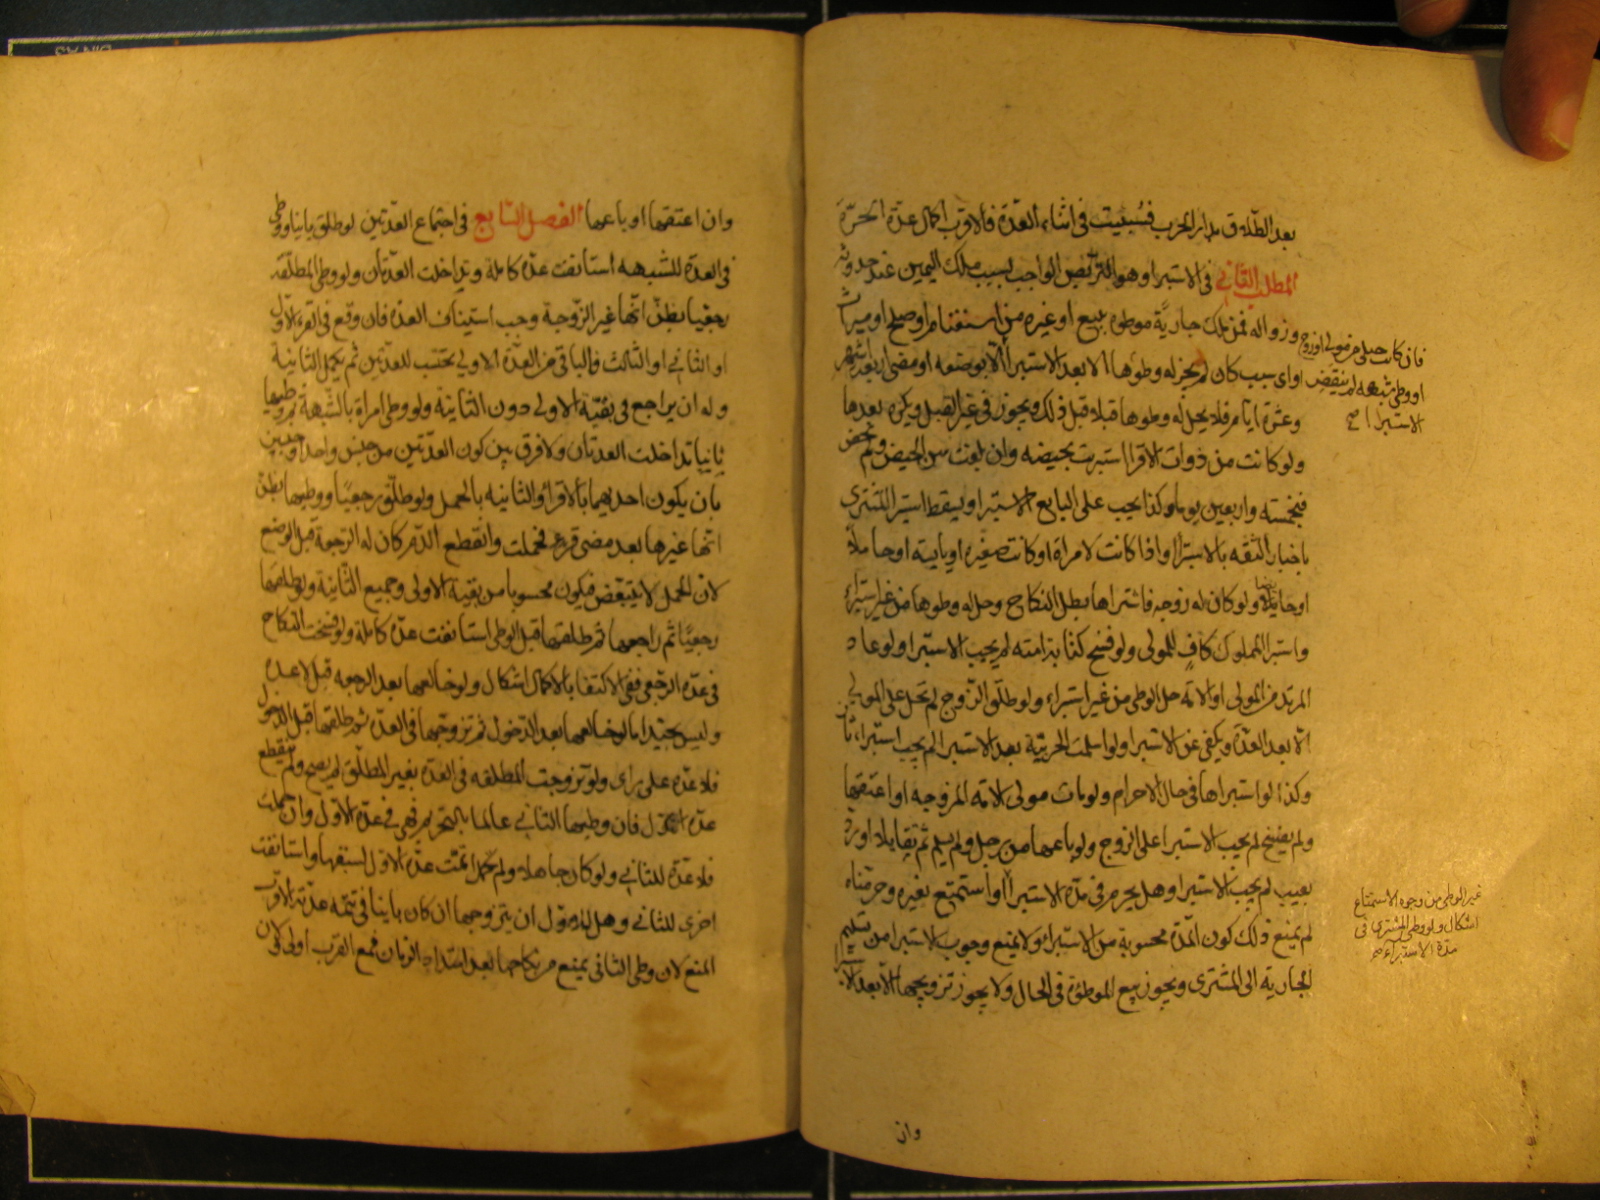 بعد الطلاق بدار الحرب فسبيت في اثناء العدة فالاقرب اكمال عدة الحرة
المطلب الثاني في الاستبرا وهو التربص الواجب بسبب ملك اليمين عند حدوثه
وزواله فمن ملك جارية موطوة ببيع او غيره من استغنام او صلح او ميراث
او اى سبب كان لم يجز له وطوها الا بعد الاستبرا الا بوضعه او مضى اربعة اشهر
وعشرة ايام فلا يحل له وطوها قبلا قبل ذلك ويجوز في غير القبل ويكره بعدها
ولو كانت من ذوات الاقرا استبرئت بحيضه وان بلغت سن الحيض ولم تحض
فبخمسة واربعين يوما وكذا يجب على البايع الاستبرا ويسقط استبرا المشترى
باخبار الثقه بالاستبرا او اذا كانت لامراة او كانت صغيره او يايسه او حاملا
او حايضا ولو كان له زوجه فاشتراها بطل النكاح وحل له وطوها من غير استبراء
واستبرا المملوك كاف للمولى ولو فسخ كتابة امته لم يجب الاستبرا ولو عاد
المرتد من المولى او الامة حل الوطى من غير استبراء ولو طلق الزوج لم تحل على المولى
الا بعد العدة ويكفى عن الاستبرا ولو اسلمت الحربية بعد الاستبرا لم يجب استبراء ثان
وكذا لو استبراها في حال الاحرام ولو مات مولى الامه المزوجه او اعتقها
ولم يفسخ لم يجب الاستبرا على الزوج ولو باعها من رجل ولم يسلم ثم تقايلا او رد
بعيب لم يجب الاستبرا وهل يحرم في مدة الاستبرا او استمتع بغيره وحرمناه
لم يمنع ذلك كون المدة محسوبة من الاستبراء ولا يمنع وجوب الاستبرا من تسليم
الجارية الى المشترى ويجوز بيع الموطوة في الحال ولا يجوز تزويجها الا بعد الاستبرا
فان كانت حبلى من مولى او زوج
او وطى شبهه لم ينقض
الاستبرا صح
غير الوطى من وجوه الاستمتاع
اشكال ولو وطى المشترى في
مدة الاستبراء صح
وان
وان اعتقها او باعها الفصل السابع في اجتماع العدتين لو طلق باينا ووطى
في العدة للشبهه استانفت عدة كاملة وتداخلت العدتان ولو وطى المطلقه
رجعيا بظن انها غير الزوجة وجب استيناف العدة فان وقع في القرء الاول
او الثاني او الثالث فالباقى من العدة الاولى يحتسب للعدتين ثم يكمل الثانية
وله ان يراجع في بقية الاولى دون الثانية ولو وطى امراة بالشبهة ثم وطيها
ثانيا تداخلت العدتان ولا فرق بين كون العدتين من جنس واحد او جنسين
بان يكون احديهما بالاقراء والثانيه بالحمل ولو طلق رجعيا ووطيها بظن
انها غيرها بعد مضى قرء فحملت وانقطع الدم كان له الرجوعة قبل الوضع
لان الحمل لا يتبعض فيكون محسوبا من بقية الاولى وجميع الثانية ولو طلقها
رجعيا ثم راجعها ثم طلقها قبل الوطى استانفت عدة كاملة ولو فسخت النكاح
في عدة الرجعى ففي الاكتفا بالاكمال اشكال ولو خالعها بعد الرجعه قبل لا عدة
وليس بجيد اما لو خالعها بعد الدخول ثم تزوجها في العدة ثم طلقها قبل الدخول
فلا عدة على راى ولو تزوجت المطلقه في العدة بغير المطلق لم يصح ولم ينقطع
عدة الاول فان وطيها الثاني عالما بالتحريم فهي في عدة الاول وان حملت
فلا عدة للثاني ولو كان جاهلا ولم تحمل اتمت عدة الاول لسبقها واستانفت
اخرى للثاني وهل للاول ان يتزوجها ان كان باينا في تتمه عدته الاقرب
المنع لان وطى الثاني يمنع من نكاحها بعد امتداد الزمان فمع القرب اولى لان